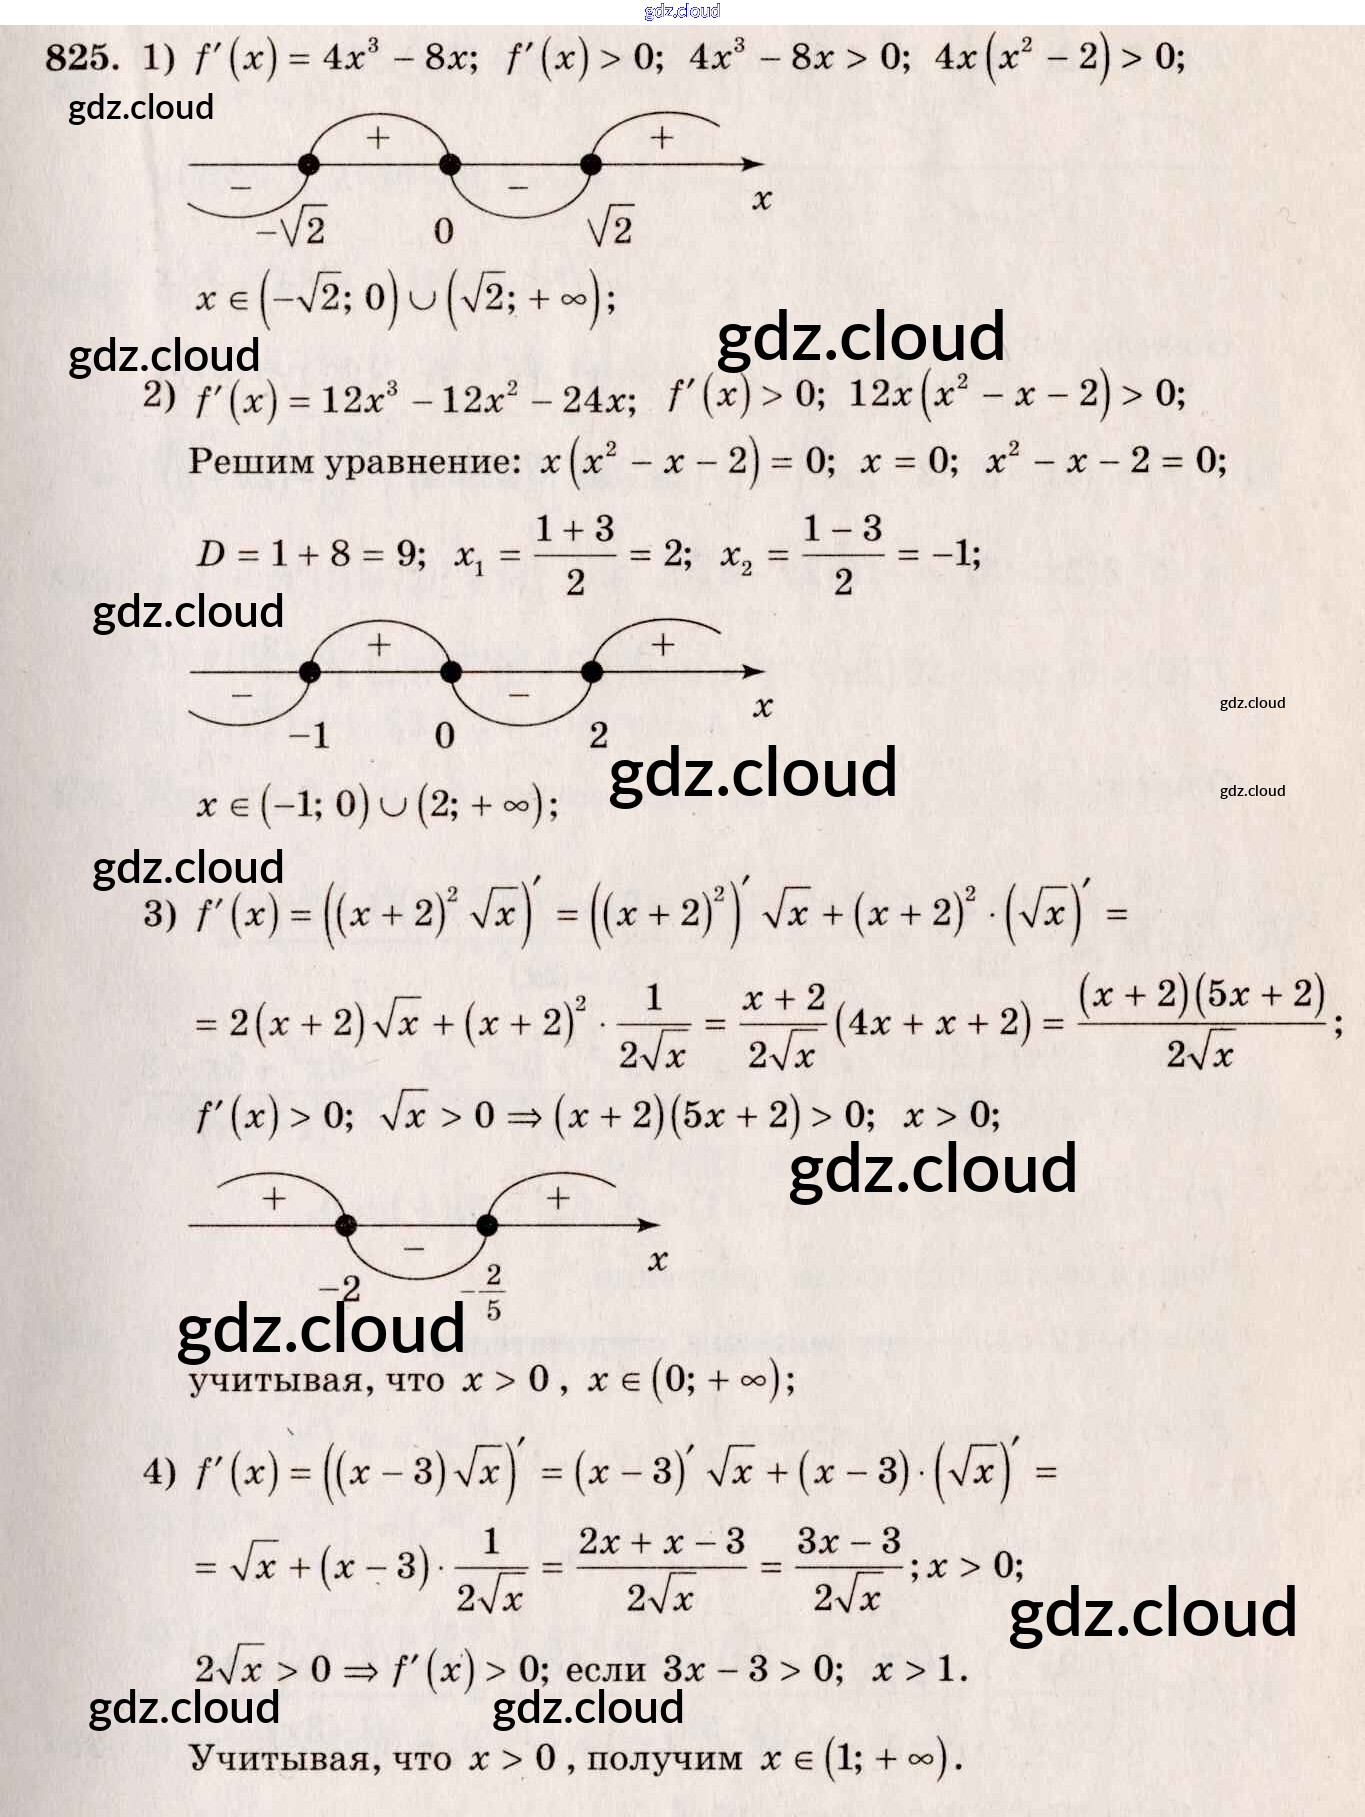 gdz.cloud
825. 1) f′(x) = 4x³ − 8x; f′(x) > 0; 4x³ − 8x > 0; 4x(x² − 2) > 0;
gdz.cloud
+ +
− − x
−√2 0 √2
x ∈ (−√2; 0) ∪ (√2; + ∞);
gdz.cloud
gdz.cloud
2) f′(x) = 12x³ − 12x² − 24x; f′(x) > 0; 12x(x² − x − 2) > 0;
Решим уравнение: x(x² − x − 2) = 0; x = 0; x² − x − 2 = 0;
D = 1 + 8 = 9; x₁ = (1 + 3)/2 = 2; x₂ = (1 − 3)/2 = −1;
gdz.cloud
+ +
− − x
gdz.cloud
−1 0 2
gdz.cloud
gdz.cloud
x ∈ (−1; 0) ∪ (2; + ∞);
gdz.cloud
3) f′(x) = ((x + 2)² √x)′ = ((x + 2)²)′ √x + (x + 2)² · (√x)′ =
= 2(x + 2)√x + (x + 2)² · 1/(2√x) = (x + 2)/(2√x) (4x + x + 2) = (x + 2)(5x + 2)/(2√x);
f′(x) > 0; √x > 0 ⇒ (x + 2)(5x + 2) > 0; x > 0;
gdz.cloud
+ +
− x
−2 −2/5
gdz.cloud
учитывая, что x > 0 , x ∈ (0; + ∞);
4) f′(x) = ((x − 3)√x)′ = (x − 3)′ √x + (x − 3) · (√x)′ =
= √x + (x − 3) · 1/(2√x) = (2x + x − 3)/(2√x) = (3x − 3)/(2√x); x > 0;
gdz.cloud
2√x > 0 ⇒ f′(x) > 0; если 3x − 3 > 0; x > 1.
gdz.cloud gdz.cloud
Учитывая, что x > 0 , получим x ∈ (1; + ∞).